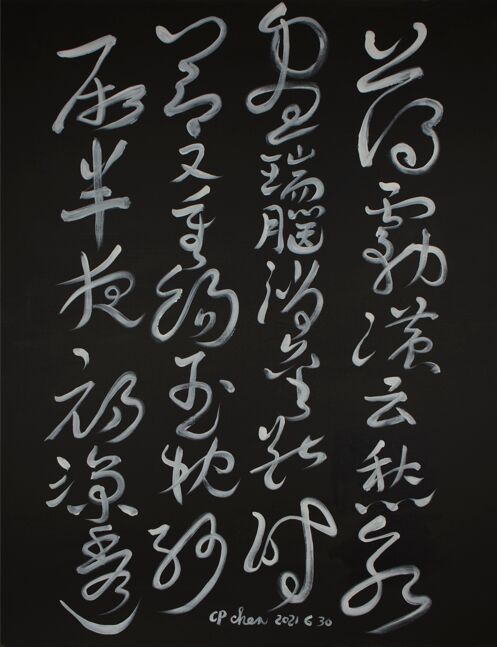 薄霧濃云愁永
晝瑞腦消金獸时
節又重陽玉枕紗
厨半夜初凉透
CP Chen 2021 6 30